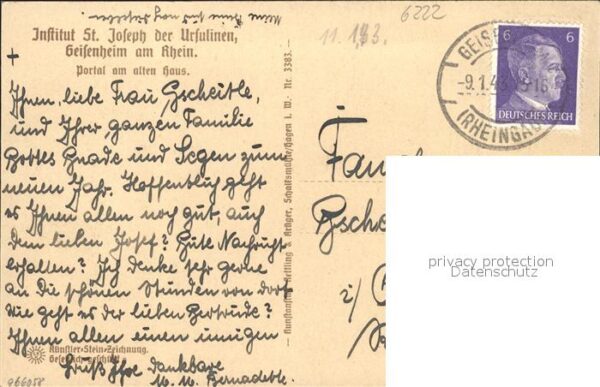 6222
11.1.43.
Institut St. Joseph der Ursulinen,
Geisenheim am Rhein.
Portal am alten Haus.
+
Ihnen, liebe Frau Gscheidle,
und Ihrer ganzen Familie
Gottes Gnade und Segen zum
neuen Jahr. Hoffentlich geht
es Ihnen allen noch gut, auch
dem lieben Josef? Gute Nachricht
erhalten? Ich denke sehr gerne
an die schönen Stunden von dort
Wie geht es der lieben Gertrude?
Ihnen allen einen innigen
Gruß Ihre dankbare
M. M. Bernadette.
Künstler-Stein-Zeichnung.
Gesetzlich geschützt.
966058
Kunstanstalt Kettling & Krüger, Schalksmühle/Hagen i. W. Nr. 3383.
-9.1.4
(RHEINGAU
6 6
DEUTSCHES REICH
Fam
Gschei
i/
privacy protection
Datenschutz